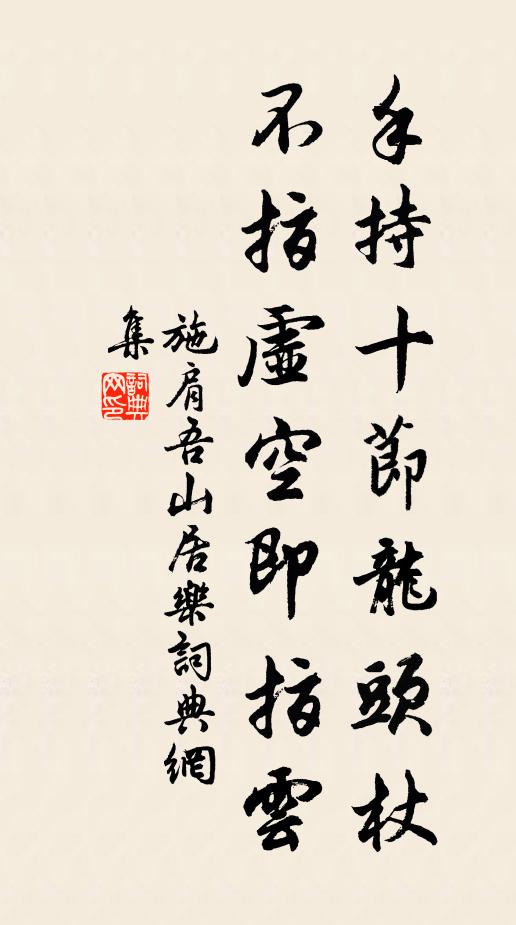 手持十節龍頭杖
不指虛空即指雲
施肩吾山居樂詞典網
集
詞典网印